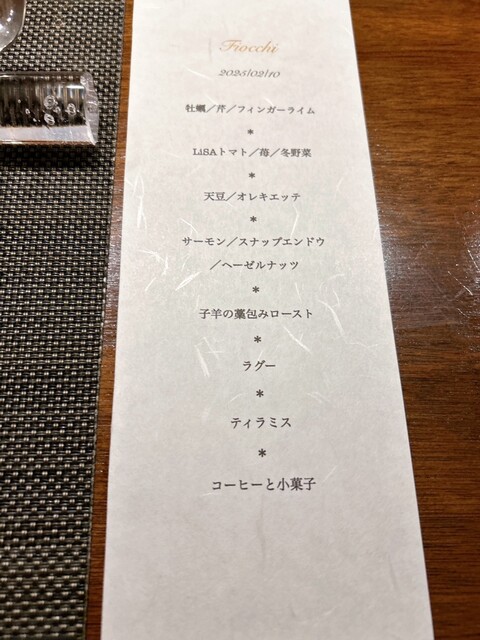 Fiocchi
2025/02/10
牡蠣／芹／フィンガーライム
*
LiSAトマト／苺／冬野菜
*
天豆／オレキエッテ
*
サーモン／スナップエンドウ
／ヘーゼルナッツ
*
子羊の藁包みロースト
*
ラグー
*
ティラミス
*
コーヒーと小菓子